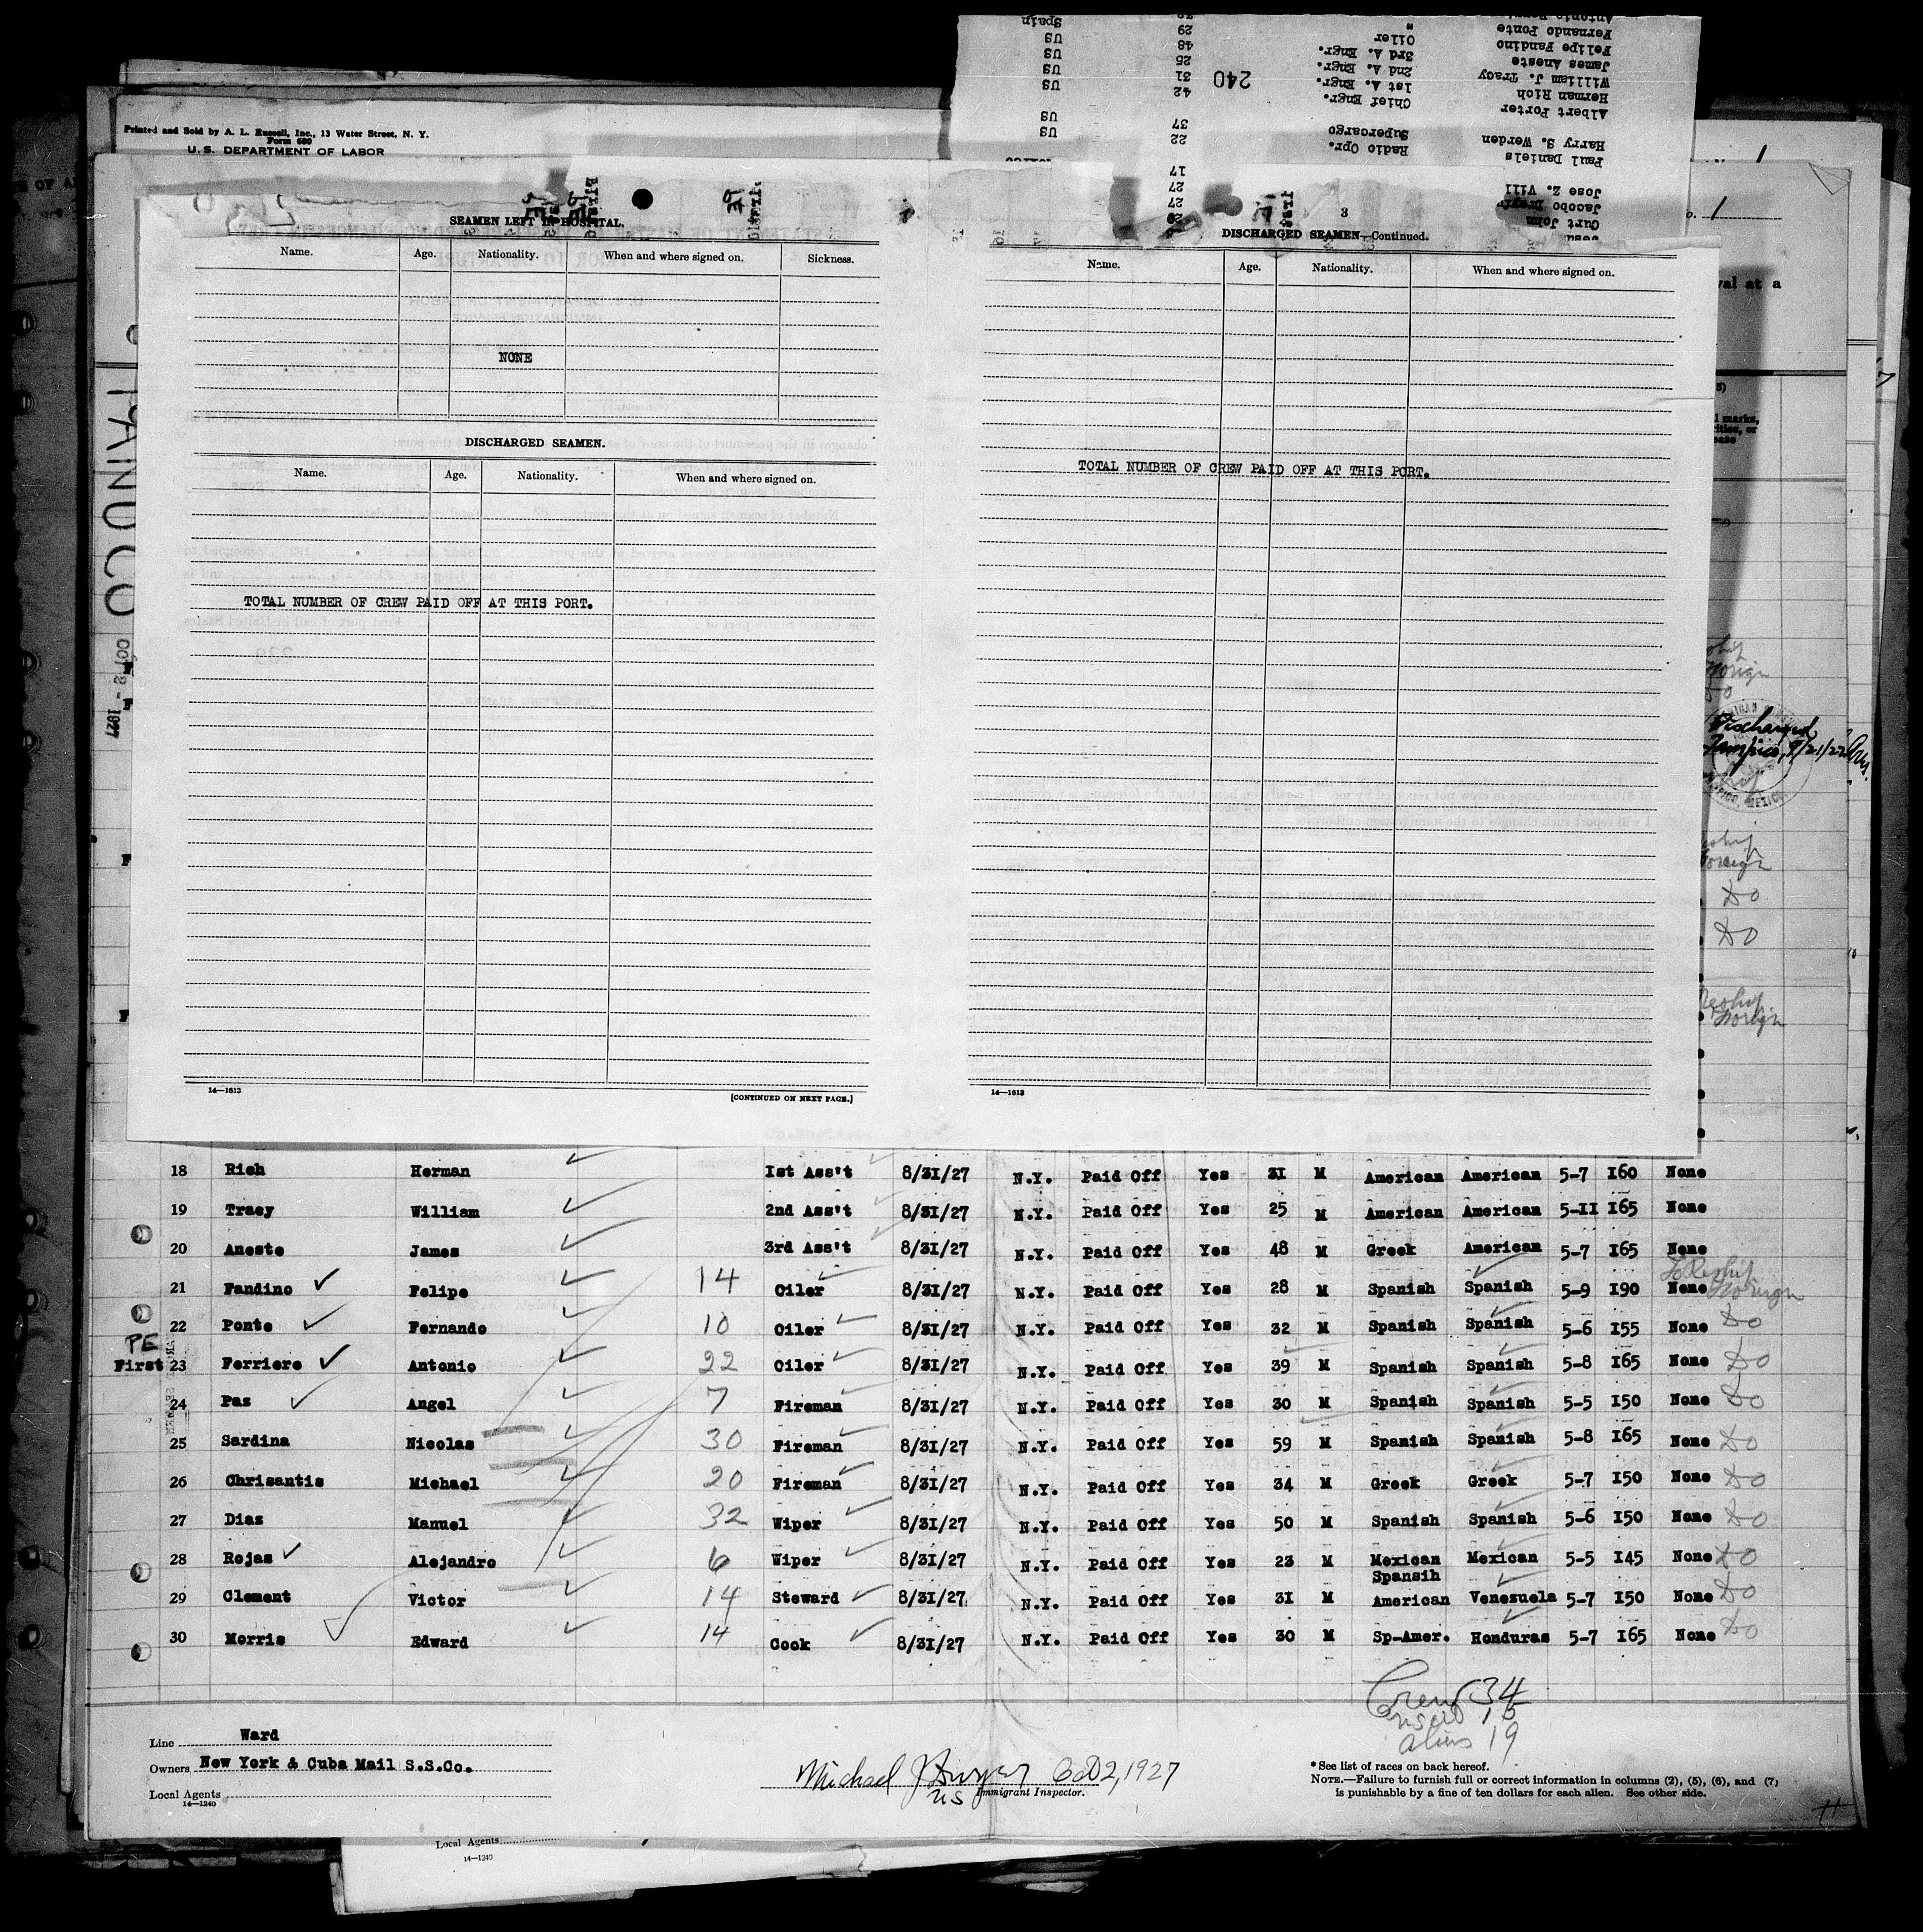 Printed and Sold by A. L. Russell, Inc., 13 Water Street, N. Y.
Form 680
U. S. DEPARTMENT OF LABOR
Spain
US
US
US
US
US
US
29
48
25
31
42
37
22
17
27
27
29
240
Oiler
3rd A. Engr.
2nd A. Engr.
1st A. Engr.
Chief Engr.
Supercargo
Radio Opr.
Fernando Ponte
Felipe Fandino
James Aneste
William J. Tracy
Herman Rich
Albert Porter
Harry S. Werden
Paul Daniels
Jose Z. Vill
Jacobo
Curt John
1
1
val at a
marks,
PANUCO
OCT 2 - 1927
SEAMEN LEFT IN HOSPITAL.
Name. Age. Nationality. When and where signed on. Sickness.
NONE
DISCHARGED SEAMEN.
Name. Age. Nationality. When and where signed on.
TOTAL NUMBER OF CREW PAID OFF AT THIS PORT.
14—1613
[CONTINUED ON NEXT PAGE.]
3
DISCHARGED SEAMEN—Continued.
Name. Age. Nationality. When and where signed on.
TOTAL NUMBER OF CREW PAID OFF AT THIS PORT.
14—1613
Discharged
Tampico, 9/21/27
Do
Do
18 Rich Herman 1st Ass't 8/31/27 N.Y. Paid Off Yes 31 M American American 5-7 160 None
19 Tracy William 2nd Ass't 8/31/27 N.Y. Paid Off Yes 25 M American American 5-11 165 None
20 Aneste James 3rd Ass't 8/31/27 N.Y. Paid Off Yes 48 M Greek American 5-7 165 None
21 Fandino Felipe 14 Oiler 8/31/27 N.Y. Paid Off Yes 28 M Spanish Spanish 5-9 190 None To Reship Foreign
22 Ponte Fernando 10 Oiler 8/31/27 N.Y. Paid Off Yes 32 M Spanish Spanish 5-6 155 None Do
PE
First 23 Ferriere Antonio 22 Oiler 8/31/27 N.Y. Paid Off Yes 39 M Spanish Spanish 5-8 165 None Do
24 Paz Angel 7 Fireman 8/31/27 N.Y. Paid Off Yes 30 M Spanish Spanish 5-5 150 None Do
25 Sardina Nicolas 30 Fireman 8/31/27 N.Y. Paid Off Yes 59 M Spanish Spanish 5-8 165 None Do
26 Chrisantis Michael 20 Fireman 8/31/27 N.Y. Paid Off Yes 34 M Greek Greek 5-7 150 None Do
27 Diaz Manuel 32 Wiper 8/31/27 N.Y. Paid Off Yes 50 M Spanish Spanish 5-6 150 None Do
28 Rojas Alejandro 6 Wiper 8/31/27 N.Y. Paid Off Yes 23 M Mexican Mexican 5-5 145 None Do
29 Clement Victor 14 Steward 8/31/27 N.Y. Paid Off Yes 31 M Spansih American Venezuela 5-7 150 None Do
30 Morris Edward 14 Cook 8/31/27 N.Y. Paid Off Yes 30 M Sp-Amer. Honduras 5-7 165 None Do
Crew 34
USC 15
aliens 19
Line Ward
Owners New York & Cuba Mail S.S.Co.
Local Agents
14—1240
Michael J Dwyer Oct 2, 1927
US Immigrant Inspector.
* See list of races on back hereof.
NOTE.—Failure to furnish full or correct information in columns (2), (5), (6), and (7)
is punishable by a fine of ten dollars for each alien. See other side.
Local Agents
14—1240